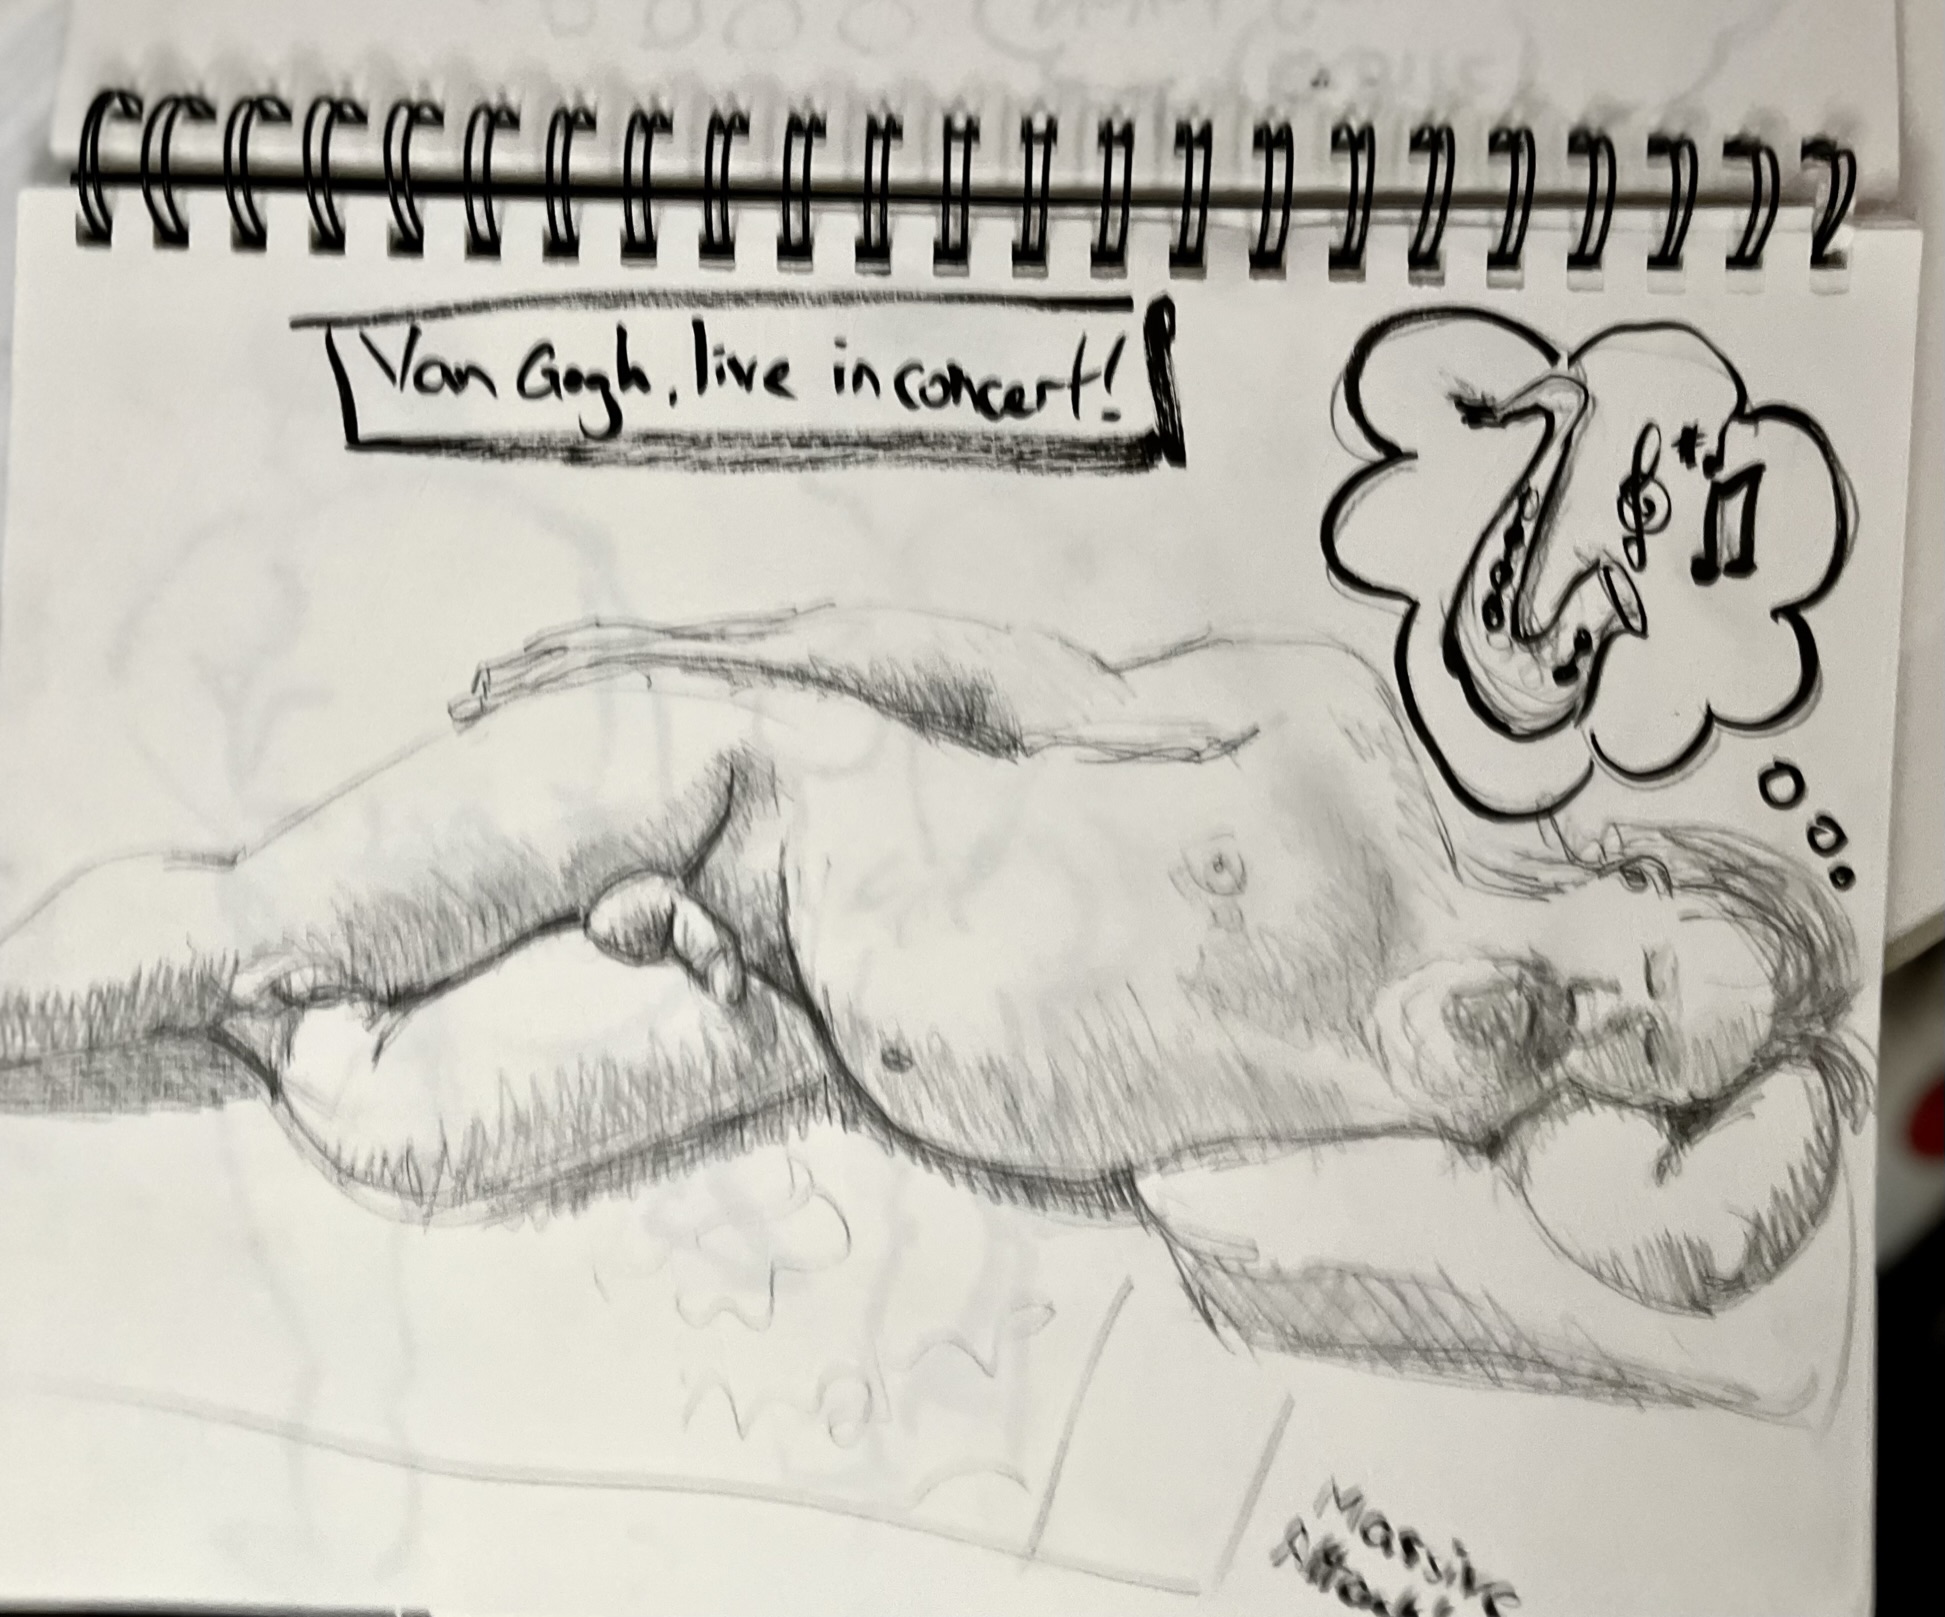 Van Gogh, live in concert!
Massive
Attack!